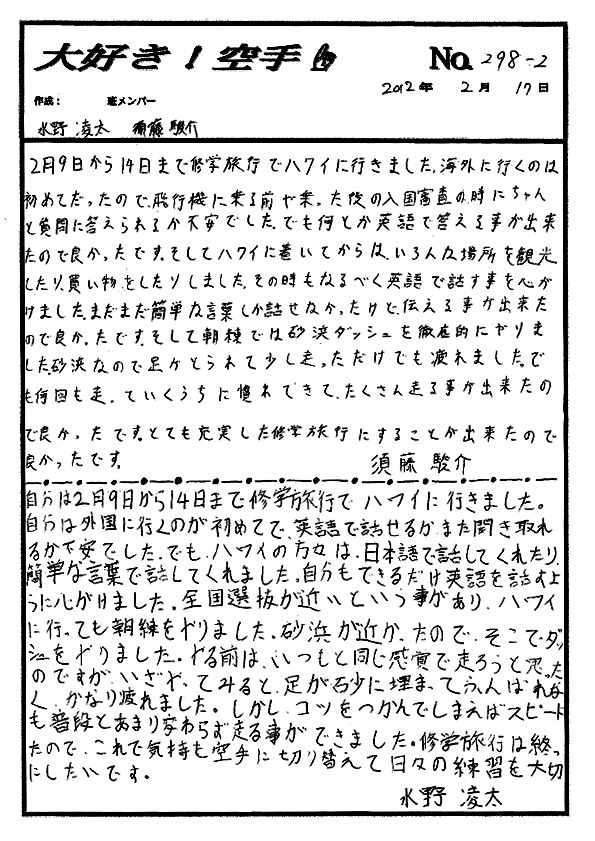 大好き！空手
No.298-2
2012年 2月 17日
作成： 班メンバー
水野 凌太 須藤 駿介
2月9日から14日まで修学旅行でハワイに行きました。海外に行くのは
初めてだったので、飛行機に乗る前や乗った後の入国審査の時にちゃん
と質問に答えられるか不安でした。でも何とか英語で答える事が出来
たので良かったです。そしてハワイに着いてからは、いろんな場所を観光
したり、買い物をしたりしました。その時もなるべく英語で話す事を心が
けました。まだまだ簡単な言葉しか話せなかったけど、伝える事が出来た
ので良かったです。そして朝練では砂浜ダッシュを徹底的にやりま
した。砂浜なので足がとられて少し走っただけでも疲れました。で
も何回も走っていくうちに慣れてきて、たくさん走る事が出来たの
で良かったです。とても充実した修学旅行にすることが出来たので
良かったです。 須藤 駿介
自分は2月9日から14日まで修学旅行でハワイに行きました。
自分は外国に行くのが初めてで、英語で話せるか、また聞き取れ
るか不安でした。でも、ハワイの方々は、日本語で話してくれたり、
簡単な言葉で話してくれました。自分もできるだけ英語を話すよ
うに心がけました。全国選抜が近いという事があり、ハワイ
に行っても朝練をやりました。砂浜が近かったので、そこでダッ
シュをやりました。やる前は、いつもと同じ感覚で走ろうと思った
のですが、いざやってみると、足が砂に埋まってふんばれな
く、かなり疲れました。しかし、コツをつかんでしまえばスピード
も普段とあまり変わらず走る事ができました。修学旅行は終っ
たので、これで気持も空手に切り替えて日々の練習を大切
にしたいです。
水野 凌太